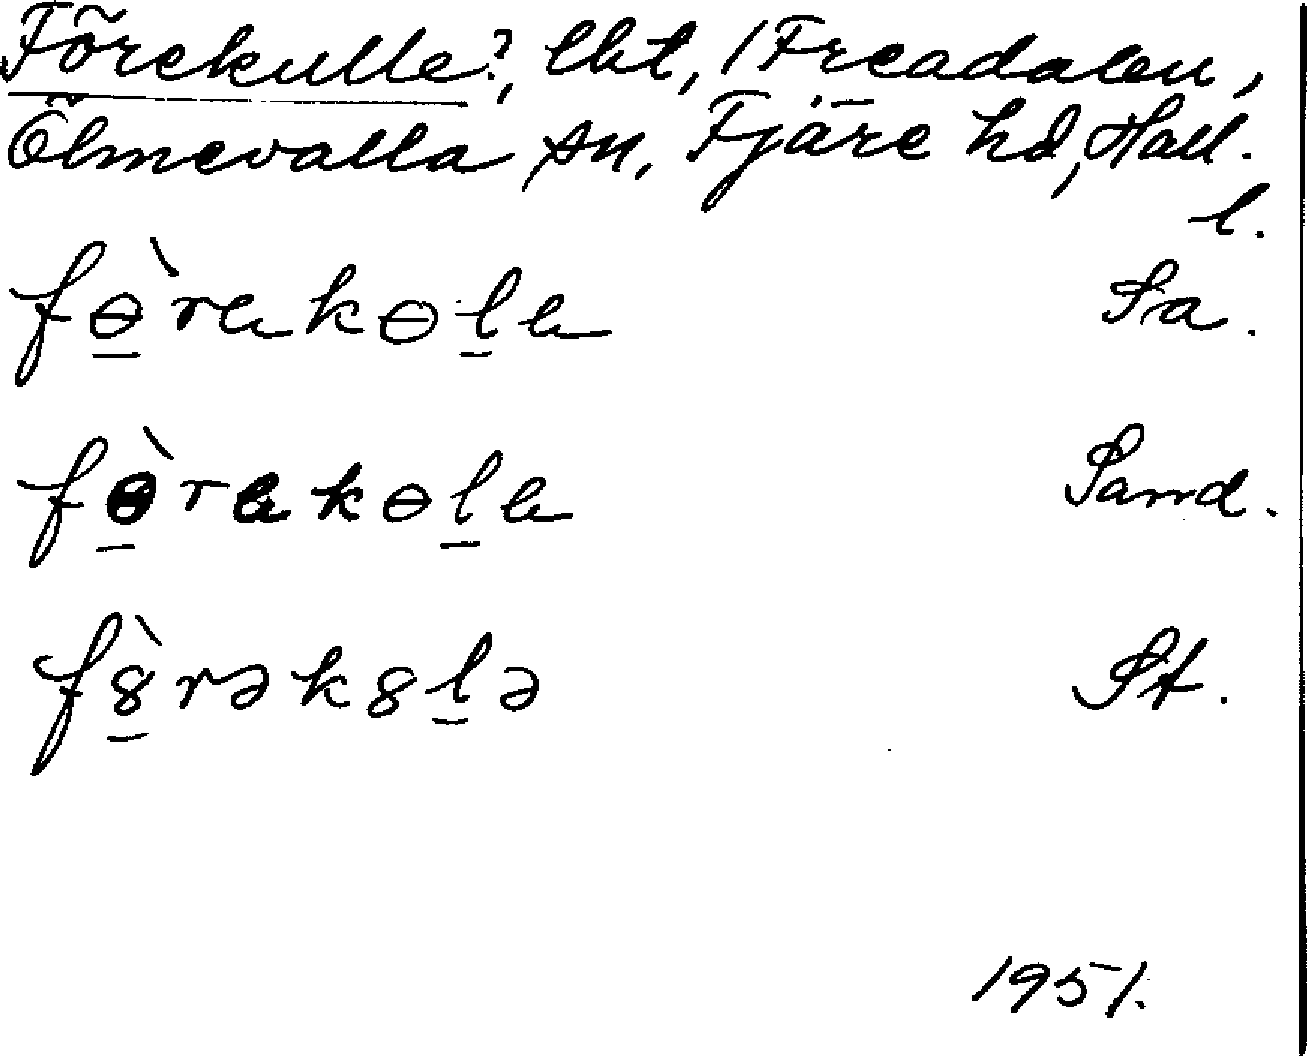 Förekulle?, lht, 1 Freadalen,
Ölmevalla sn, Fjäre hd, Hall.
l.
fɵ̱̀rekɵḻe Sa.
fɵ̱̀rekɵḻe Sand.
f8̱̀rək8ḻə St.
1951.